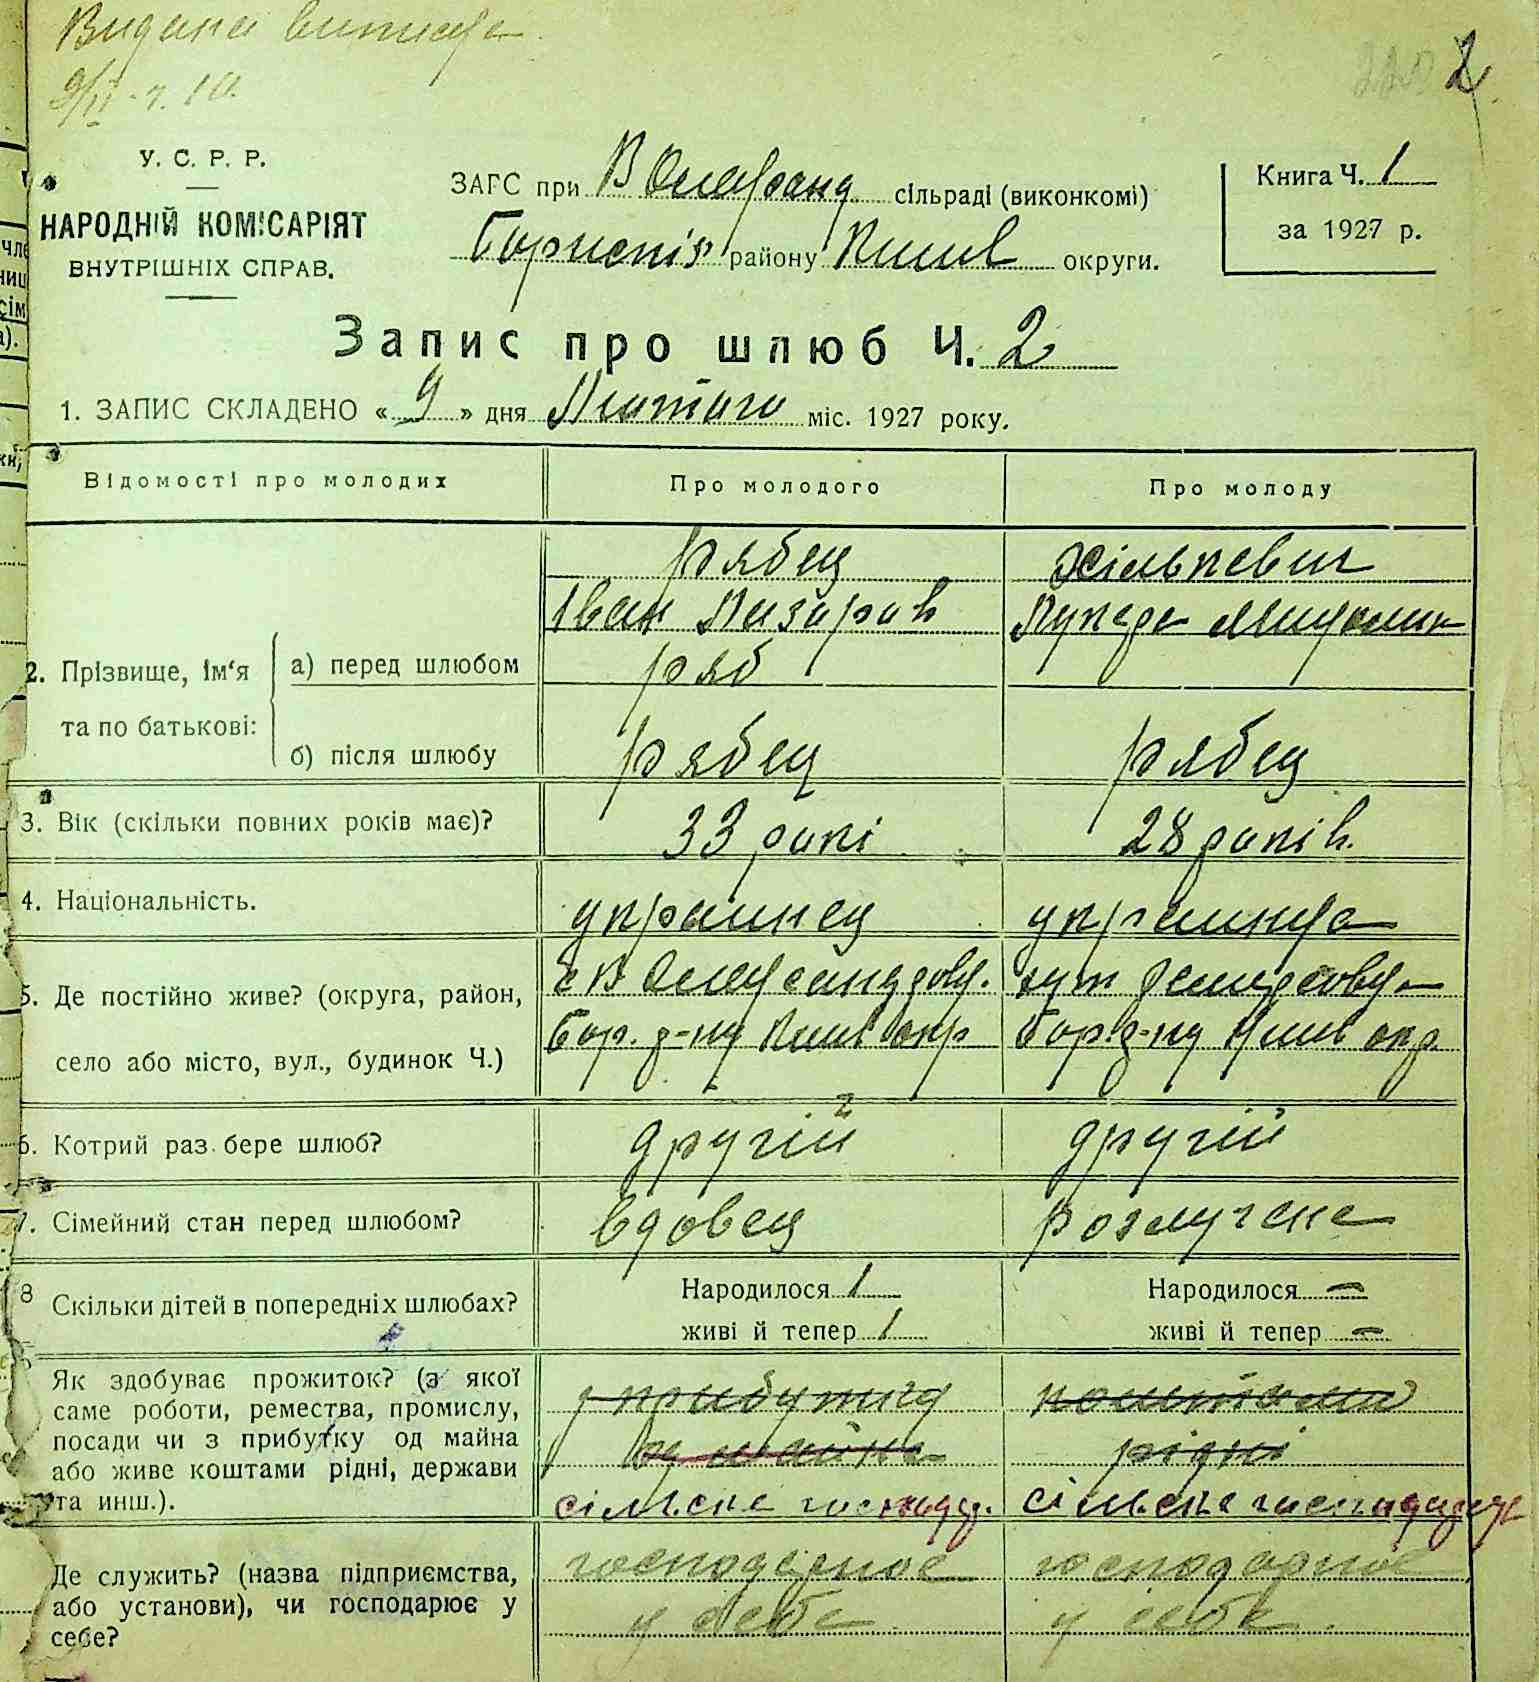 Видана виписа
У. С. Р. Р.
НАРОДНІЙ КОМІСАРІЯТ
ВНУТРІШНІХ СПРАВ.
ЗАГС при В Олександ сільраді (виконкомі)
Бориспіл району Київ округи.
Книга Ч. 1
за 1927 р.
2
Запис про шлюб Ч. 2
1. ЗАПИС СКЛАДЕНО « 9 » дня Лютого міс. 1927 року.
Відомості про молодих
Про молодого
Про молоду
2. Прізвище, ім‘я та по батькові:
а) перед шлюбом
Рябец
Іван Лазаров
Ряб
б) після шлюбу
Рябец
Рябец
3. Вік (скільки повних років має)?
33 рокі
28 років.
4. Національність.
украинец
украинка
5. Де постійно живе? (округа, район,
село або місто, вул., будинок Ч.)
с В Олександров.
Бор. р-ну Київ окр
хут
Бор. р-ну Київ окр.
6. Котрий раз бере шлюб?
другій
другій
7. Сімейний стан перед шлюбом?
вдовец
розлучена
8 Скільки дітей в попередніх шлюбах?
Народилося 1
живі й тепер 1
Народилося —
живі й тепер —
Як здобуває прожиток? (з якої
саме роботи, ремества, промислу,
посади чи з прибутку од майна
або живе коштами рідні, держави
та инш.).
з прибутку
од майна
сільске господар.
коштами
рідні
сільске господарс
Де служить? (назва підприємства,
або установи), чи господарює у
себе?
господарює
у себе
господарює
у себе